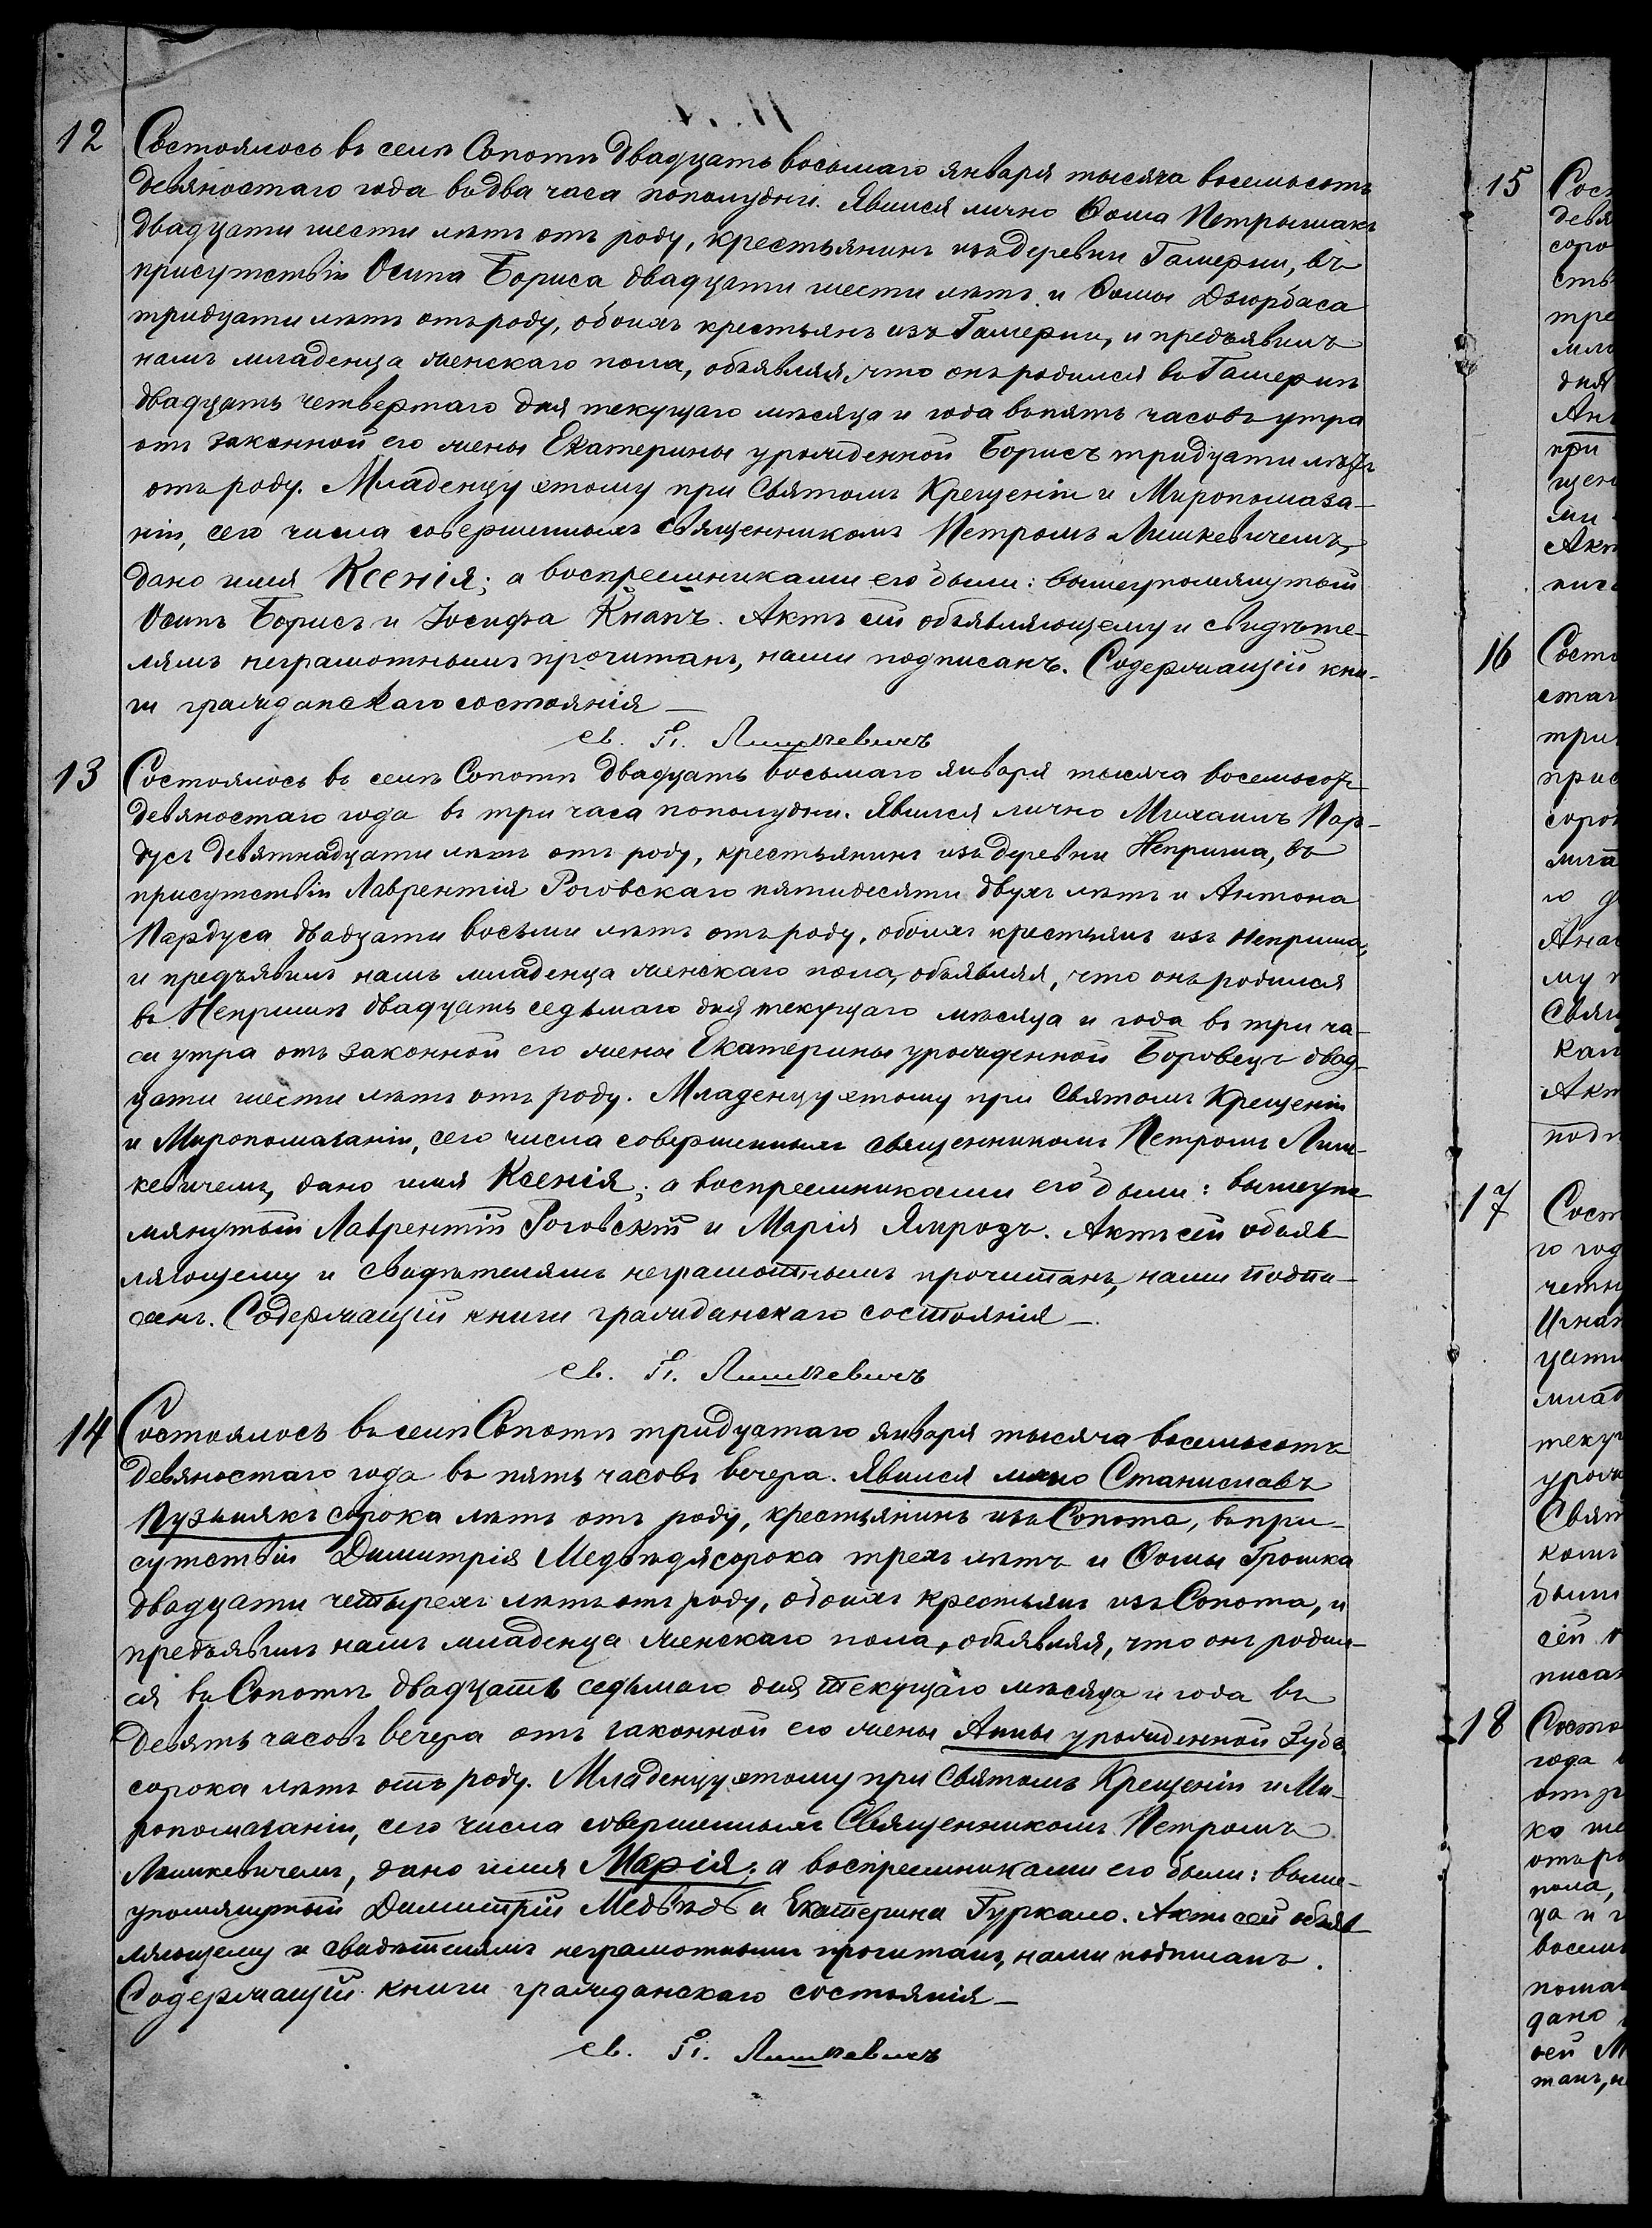 12
Состоялось въ селѣ Сопотѣ двадцать восьмаго января тысяча восемьсотъ
девяностаго года въ два часа пополудни. Явился лично Ѳома Петрышакъ
двадцати шести лѣтъ отъ роду, крестьянинъ изъ деревни Гамерни, въ
присутствіи Осипа Бориса двадцати шести лѣтъ и Ѳомы Дзюрбаса
тридцати лѣтъ отъ роду, обоихъ крестьянъ изъ Гамерни, и предъявилъ
намъ младенца женскаго пола, объявляя, что онъ родился въ Гамернѣ
двадцать четвертаго дня текущаго мѣсяца и года въ пять часовъ утра
отъ законной его жены Екатерины урожденной Борисъ тридцати лѣтъ
отъ роду. Младенцу этому при Святомъ Крещеніи и Миропомаза-
ніи, сего числа совершенныхъ Священникомъ Петромъ Лишкевичемъ,
дано имя Ксенія; а воспреемниками его были: вышеупомянутый
Осипъ Борисъ и Іосифа Кнапъ. Актъ сей объявляющему и свидѣте-
лямъ неграмотнымъ прочитанъ, нами подписанъ. Содержащій кни-
ги гражданскаго состоянія
св. П. Лишкевичъ
13
Состоялось въ селѣ Сопотѣ двадцать восьмаго января тысяча восемьсотъ
девяностаго года въ три часа пополудни. Явился лично Михаилъ Пар-
дусъ девятнадцати лѣтъ отъ роду, крестьянинъ изъ деревни Неприша, въ
присутствіи Лаврентія Роговскаго пятидесяти двухъ лѣтъ и Антона
Пардуса двадцати восьми лѣтъ отъ роду, обоихъ крестьянъ изъ Неприша,
и предъявилъ намъ младенца женскаго пола, объявляя, что онъ родился
въ Непришѣ двадцать седьмаго дня текущаго мѣсяца и года въ три ча-
са утра отъ законной его жены Екатерины урожденной Боровецъ двад-
цати шести лѣтъ отъ роду. Младенцу этому при Святомъ Крещеніи
и Миропомазаніи, сего числа совершенныхъ священникомъ Петромъ Лиш-
кевичемъ, дано имя Ксенія; а воспреемниками его были: вышеупо-
мянутый Лаврентій Роговскій и Марія Ямрозъ. Актъ сей объяв-
ляющему и свидѣтелямъ неграмотнымъ прочитанъ, нами подпи-
санъ. Содержащій книги гражданскаго состоянія
св. П. Лишкевичъ
14
Состоялось въ селѣ Сопотѣ тридцатаго января тысяча восемьсотъ
девяностаго года въ пять часовъ вечера. Явился лично Станиславъ
Пузьнякъ сорока лѣтъ отъ роду, крестьянинъ изъ Сопота, въ при-
сутствіи Димитрія Медвѣдя сорока трехъ лѣтъ и Ѳомы Грошка
двадцати четырехъ лѣтъ отъ роду, обоихъ крестьянъ изъ Сопота, и
предъявилъ намъ младенца женскаго пола, объявляя, что онъ родил-
ся въ Сопотѣ двадцать седьмаго дня текущаго мѣсяца и года въ
девять часовъ вечера отъ законной его жены Анны урожденной Зубъ
сорока лѣтъ отъ роду. Младенцу этому при Святомъ Крещеніи и Ми-
ропомазаніи, сего числа совершенныхъ Священникомъ Петромъ
Лишкевичемъ, дано имя Марія; а воспреемниками его были: выше-
упомянутый Димитрій Медвѣдь и Екатерина Гуркало. Актъ сей объяв-
ляющему и свидѣтелямъ неграмотнымъ прочитанъ, нами подписанъ.
Содержащій книги гражданскаго состоянія
св. П. Лишкевичъ
15
16
17
18